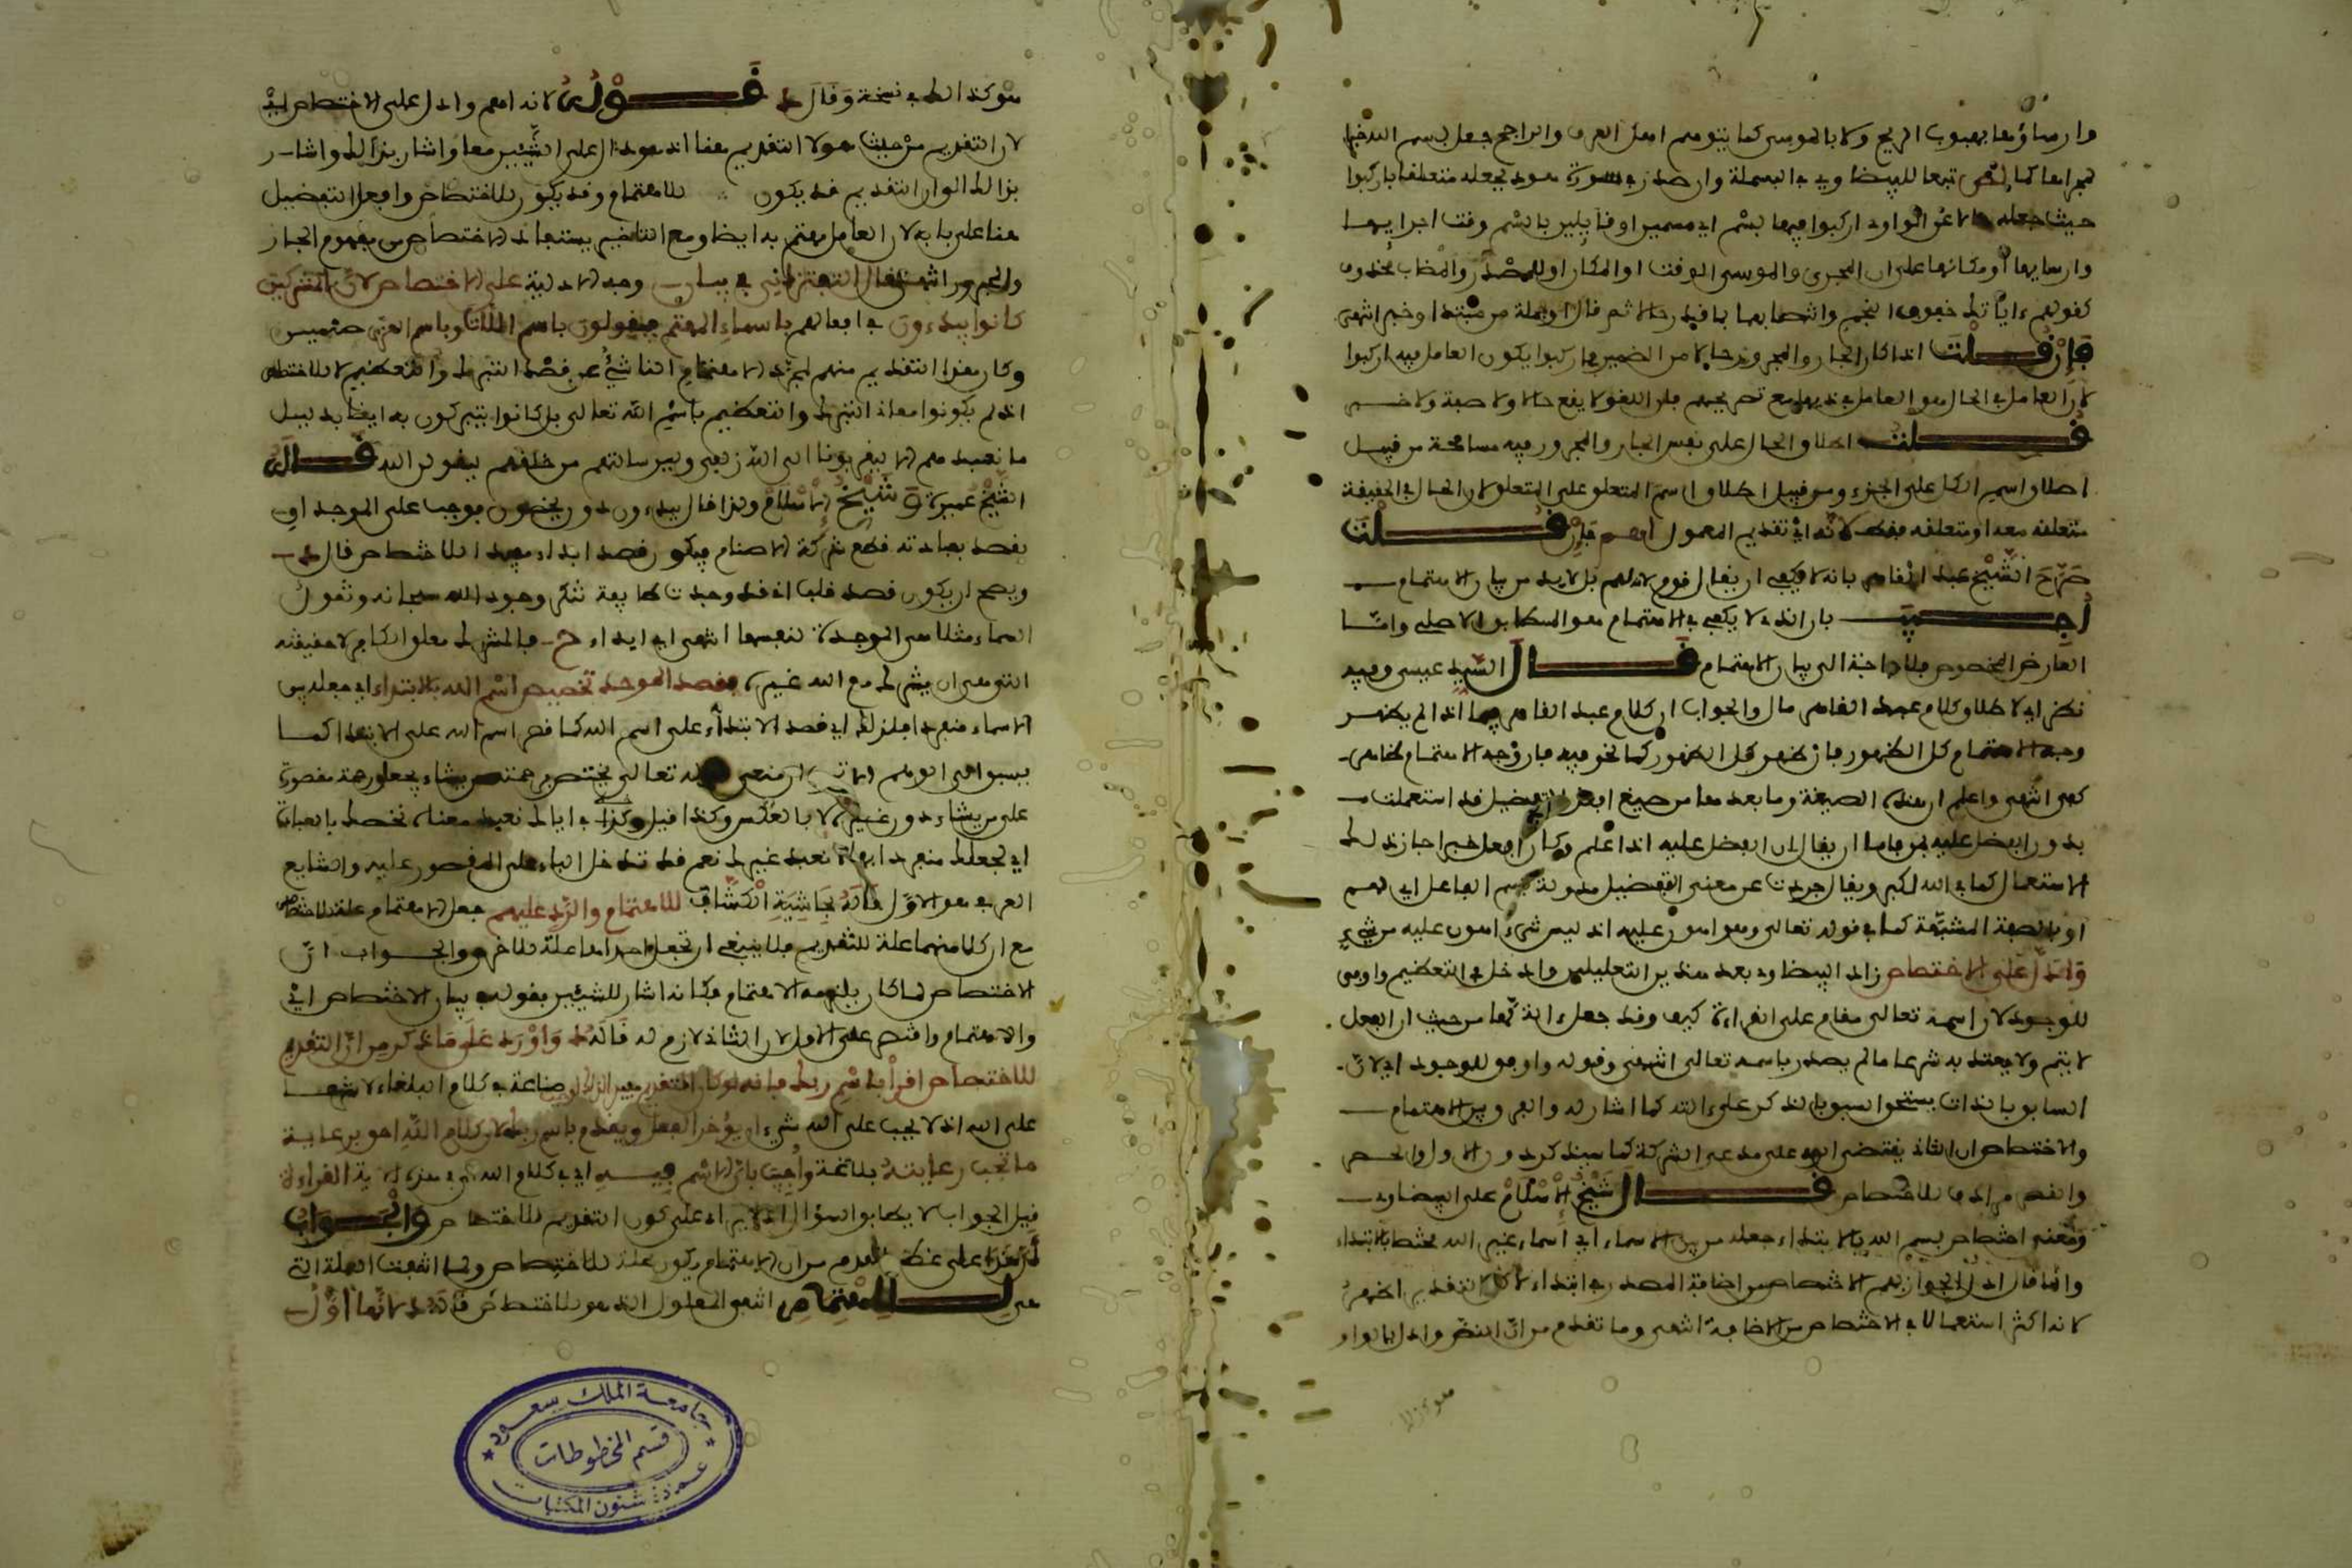 وارساؤها بهبوب الريح ولا بالموسى كما يتوهم اهل العرف والراجح جعل بسم الله خبرا
لمجراها كما تبعا للبيضاوي في البسملة وان صدر في سورة هود بجعله متعلقا باركبوا
حيث جعله حالا عن الواو اي اركبوا فيها بسم اي مسمين او قايلين بالسم وقت اجرايها
وارسايها او مكانها على ان المجرى والمرسى الوقت او المكان او المصدر والمضاف محذوف
كقولهم اتيتك خفوق النجم وانتصابها بما قدر حالا ثم قال او جملة من مبتدا وخبر انتهى
فإن قلت اذا كان الجار والمجرور حالا من الضمير في اركبوا يكون العامل فيه اركبوا
لان العامل في الحال هو العامل في ذيها مع تصريحهم بان اللغو لا يقع حالا ولا صفة ولا خبر
قلت اطلاق الحال على نفس الجار والمجرور فيه مسامحة من قبيل
اطلاق اسم الكل على الجزء ومن قبيل اطلاق اسم المتعلق على المتعلق لان الحال في الحقيقة
متعلقه معه او متعلقه فقط لانه اي تقديم المعمول اهم فإن قلت
صرح الشيخ عبد القاهر بانه لا يكفي ان يقال قدم لانه اهم بل لابد من بيان الاهتمام
أجيب بان الذي لا يكفي في الاهتمام هو السابق الاصلي واما
العارض المخصوص فلا حاجة الى بيان الاهتمام قال السيد عيسى وفيه
نظر اي لاطلاق كلام عبد القاهر قال والجواب ان كلام عبد القاهر فيما اذا لم يظهر
وجه الاهتمام كل الظهور فان ظهر كل الظهور كما نحن فيه فان وجه الاهتمام ظاهر
كفى انتهى واعلم ان هذه الصيغة وما بعدها من صيغ افعل التفضيل قد استعملت
بدون المفضل عليه فاما ان يقال ان المفضل عليه اذا علم وكان افعل خبرا جاز ذلك
الاستعمال كما في الله اكبر ويقال جردت عن معنى التفضيل مؤولة باسم الفاعل اي مهم
او بالصفة المشبهة كما في قوله تعالى وهو اهون عليه اذ ليس شيء اهون عليه من شيء
وادل على الاختصاص زاد البيضاوي بعد هذين التعليلين وادخل في التعظيم واوفق
للوجود لان اسمه تعالى مقدم على القراءة كيف وقد جعل الة لها من حيث ان الفعل
لا يتم ولا يعتد به شرعا ما لم يصدر باسمه تعالى انتهى وقوله واوفق للوجود اي لان
السابق بالذات يستحق السبق بالذكر على الله كما اشار له والفرق بين الاهتمام
والاختصاص ان الثاني يقتضي الرد على مدعي الشركة كما سيذكر دون الاول
والقصر مرادف للاختصاص قال شيخ الإسلام على البيضاوي
ومعنى اختصاص بسم الله بالابتداء جعله من بين الاسماء اي اسماء غير الله مختصا بالابتداء
وانما قال ادل لجواز فهم الاختصاص من اضافة المصدر في ابتداءي لكن التقديم اظهر
لانه اكثر استعمالا في الاختصاص من الاضافة انتهى وما تقدم من ان النظر وادل بالواو
هو كذالك في نسخة وقال قوله لانه اهم وادل على الاختصاص اي
لان التقديم من حيث هو لا التقديم هنا اذ هو دال على الشيئين معا واشار بذالك واشار
بذالك الى ان التقديم قد يكون للاهتمام وقد يكون للاختصاص وافعل التفضيل
هنا على بابه لان العامل مهتم به ايضا ومع التاخير يستفاد الاختصاص من مفهوم الجار
والمجرور انتهى قال التفتزاني في بيان وجه الادلية على الاختصاص لان المشركين
كانوا يبدءون في افعالهم باسماء الهتهم فيقولون باسم اللات وباسم العزى
وكان هذا التقديم منهم لمجرد الاهتمام الناشئ عن قصد التبرك والتعظيم لا للاختصاص
اذ لم يكونوا معاذ التبرك والتعظيم باسم الله تعالى بل كانوا يتبركون به ايضا بدليل
ما نعبدهم الا ليقربونا الى الله زلفى ولئن سالتهم من خلقهم ليقولن الله قال
الشيخ عميرة وشيخ الإسلام ولذا قال يبدءون دون يخصون فوجب على الموحد ان
يقصد بعبادته قطع شركة الاصنام فيكون قصد ابداء مفيدا للاختصاص قال
ويصح ان يكون قصد قلب اذ قد وجدت طايفة تنكر وجود الله سبحانه وتقول
السماء مثلا هي الموجدة لنفسها انتهى اي ابداء ح فالمشرك مطلق الكافر لا حقيقته
التي هي ان يشرك مع الله غيره فقصد الموحد تخصيص اسم الله بالابتداء اي جعله من بين
الاسماء منفردا بذلك اي قصد الابتداء على اسم الله لا قصر اسم الله على الابتداء كما
يسبق الى الوهم تعالى يختص برحمته من يشاء يجعل رحمته مقصورة
على من يشاء دون غيره لا بالعكس وكذا قيل وكذا في اياك نعبد معناه نخصك بالعبادة
اي نجعلك منفردا بها لا نعبد غيرك نعم قد تدخل الباء على المقصور عليه والشايع
العربي هو الاول قاله بحاشية الكشاف للاهتمام والرد عليهم جعل الاهتمام علة للاختصاص
مع ان كلا منهما علة للتقديم فلا ينبغي ان تجعل احداهما علة للاخرى والجواب ان
الاختصاص لما كان يلزمه الاهتمام فكانه اشار للشيئين بقوله في بيان الاختصاص اي
والاهتمام واقتصر على الاول لان الثاني لازم له قاله وأورد على ما ذكر من ان التقديم
للاختصاص اقرأ باسم ربك فانه لو كان التقديم مفيدا لذالك صناعة في كلام البلغاء لا شرعا
على الله اذ لا يجب على الله شيء ان يؤخر الفعل ويقدم باسم ربك لان كلام الله احق برعاية
ما تجب رعايته بلاغة وأجيب بان الاسم فيه اي في كلام الله اي في هذه الاية القراءة
قيل الجواب لا يطابق السؤال اذ الايراد على كون التقديم للاختصاص والجواب
ان هذا على تقدم من ان الاهتمام يكون علة للاختصاص ولما انتفت العلة التي
هي للاهتمام انتفى المعلول الذي هو للاختصاص قاله لانها أول
جامعة الملك سعود
قسم المخطوطات
عمادة شئون المكتبات